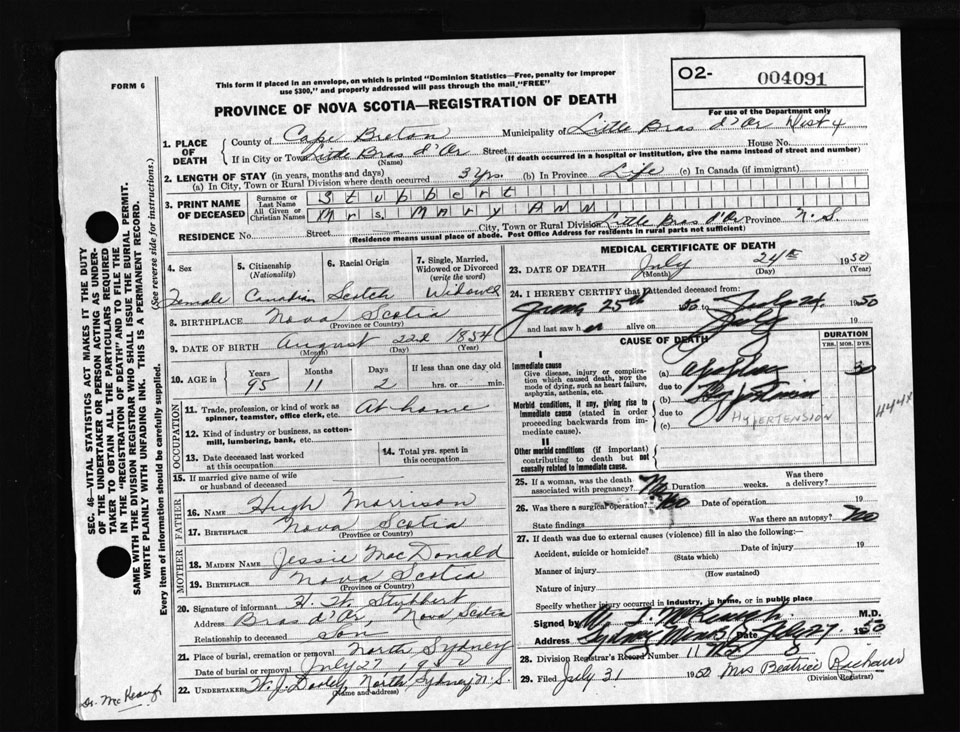 FORM 6
This form if placed in an envelope, on which is printed "Dominion Statistics—Free, penalty for improper
use $300," and properly addressed will pass through the mail "FREE"
O2- 004091
For use of the Department only
PROVINCE OF NOVA SCOTIA—REGISTRATION OF DEATH
1. PLACE OF DEATH
County of Cape Breton Municipality of Little Bras d'Or Dist 4
If in City or Town Little Bras d'Or Street House No.
(Name) (If death occurred in a hospital or institution, give the name instead of street and number)
2. LENGTH OF STAY (in years, months and days)
(a) In City, Town or Rural Division where death occurred 3 yrs. (b) In Province Life (c) In Canada (if immigrant)
3. PRINT NAME OF DECEASED
Surname or Last Name Stubbert
All Given or Christian Names Mrs. Mary Ann
RESIDENCE No. Street City, Town or Rural Division Little Bras d'Or Province N.S.
(Residence means usual place of abode. Post Office Address for residents in rural parts not sufficient)
4. Sex Female
5. Citizenship (Nationality) Canadian
6. Racial Origin Scotch
7. Single, Married, Widowed or Divorced (write the word) Widowed
8. BIRTHPLACE Nova Scotia
(Province or Country)
9. DATE OF BIRTH August 22d 1854
(Month) (Day) (Year)
10. AGE in Years 95 Months 11 Days 2 If less than one day old hrs. or min.
OCCUPATION
11. Trade, profession, or kind of work as spinner, teamster, office clerk, etc. At home
12. Kind of industry or business, as cotton-mill, lumbering, bank, etc.
13. Date deceased last worked at this occupation
14. Total yrs. spent in this occupation
15. If married give name of wife or husband of deceased
FATHER
16. NAME Hugh Morrison
17. BIRTHPLACE Nova Scotia
(Province or Country)
MOTHER
18. MAIDEN NAME Jessie MacDonald
19. BIRTHPLACE Nova Scotia
(Province or Country)
20. Signature of informant H. W. Stubbert
Address Bras d'Or, Nova Scotia
Relationship to deceased Son
21. Place of burial, cremation or removal North Sydney
Date of burial or removal July 27 1950
22. UNDERTAKER W. J. Dooley North Sydney N.S.
(Name and address)
MEDICAL CERTIFICATE OF DEATH
23. DATE OF DEATH July 24th 1950
(Month) (Day) (Year)
24. I HEREBY CERTIFY that I attended deceased from:
25th 50 to July 24, 1950
and last saw h er alive on July 19
CAUSE OF DEATH
DURATION
YRS. MOS. DYS.
I
Immediate cause
Give disease, injury or complication which caused death, NOT the mode of dying, such as heart failure, asphyxia, asthenia, etc.
(a) 30
due to
Morbid conditions, if any, giving rise to immediate cause (stated in order proceeding backwards from immediate cause).
(b)
due to
HYPERTENSION
(c)
444X
II
Other morbid conditions (if important) contributing to death but not causally related to immediate cause.
25. If a woman, was the death associated with pregnancy? No Duration weeks. Was there a delivery?
26. Was there a surgical operation? No Date of operation 19
State findings Was there an autopsy? No
27. If death was due to external causes (violence) fill in also the following:—
Accident, suicide or homicide? Date of injury 19
(State which)
Manner of injury
(How sustained)
Nature of injury
Specify whether injury occurred in industry, in home, or in public place
Signed by M.D.
Address Sydney Mines Date July 27 1950
28. Division Registrar's Record Number 11
29. Filed July 31 1950 Mrs Beatrice
(Division Registrar)
SEC. 46—VITAL STATISTICS ACT MAKES IT THE DUTY
OF THE UNDERTAKER OR PERSON ACTING AS UNDER-
TAKER TO OBTAIN ALL THE PARTICULARS REQUIRED
IN THE "REGISTRATION OF DEATH" AND TO FILE THE
SAME WITH THE DIVISION REGISTRAR WHO SHALL ISSUE THE BURIAL PERMIT.
WRITE PLAINLY WITH UNFADING INK. THIS IS A PERMANENT RECORD.
Every item of information should be carefully supplied. (See reverse side for instructions.)
Dr. McKeough